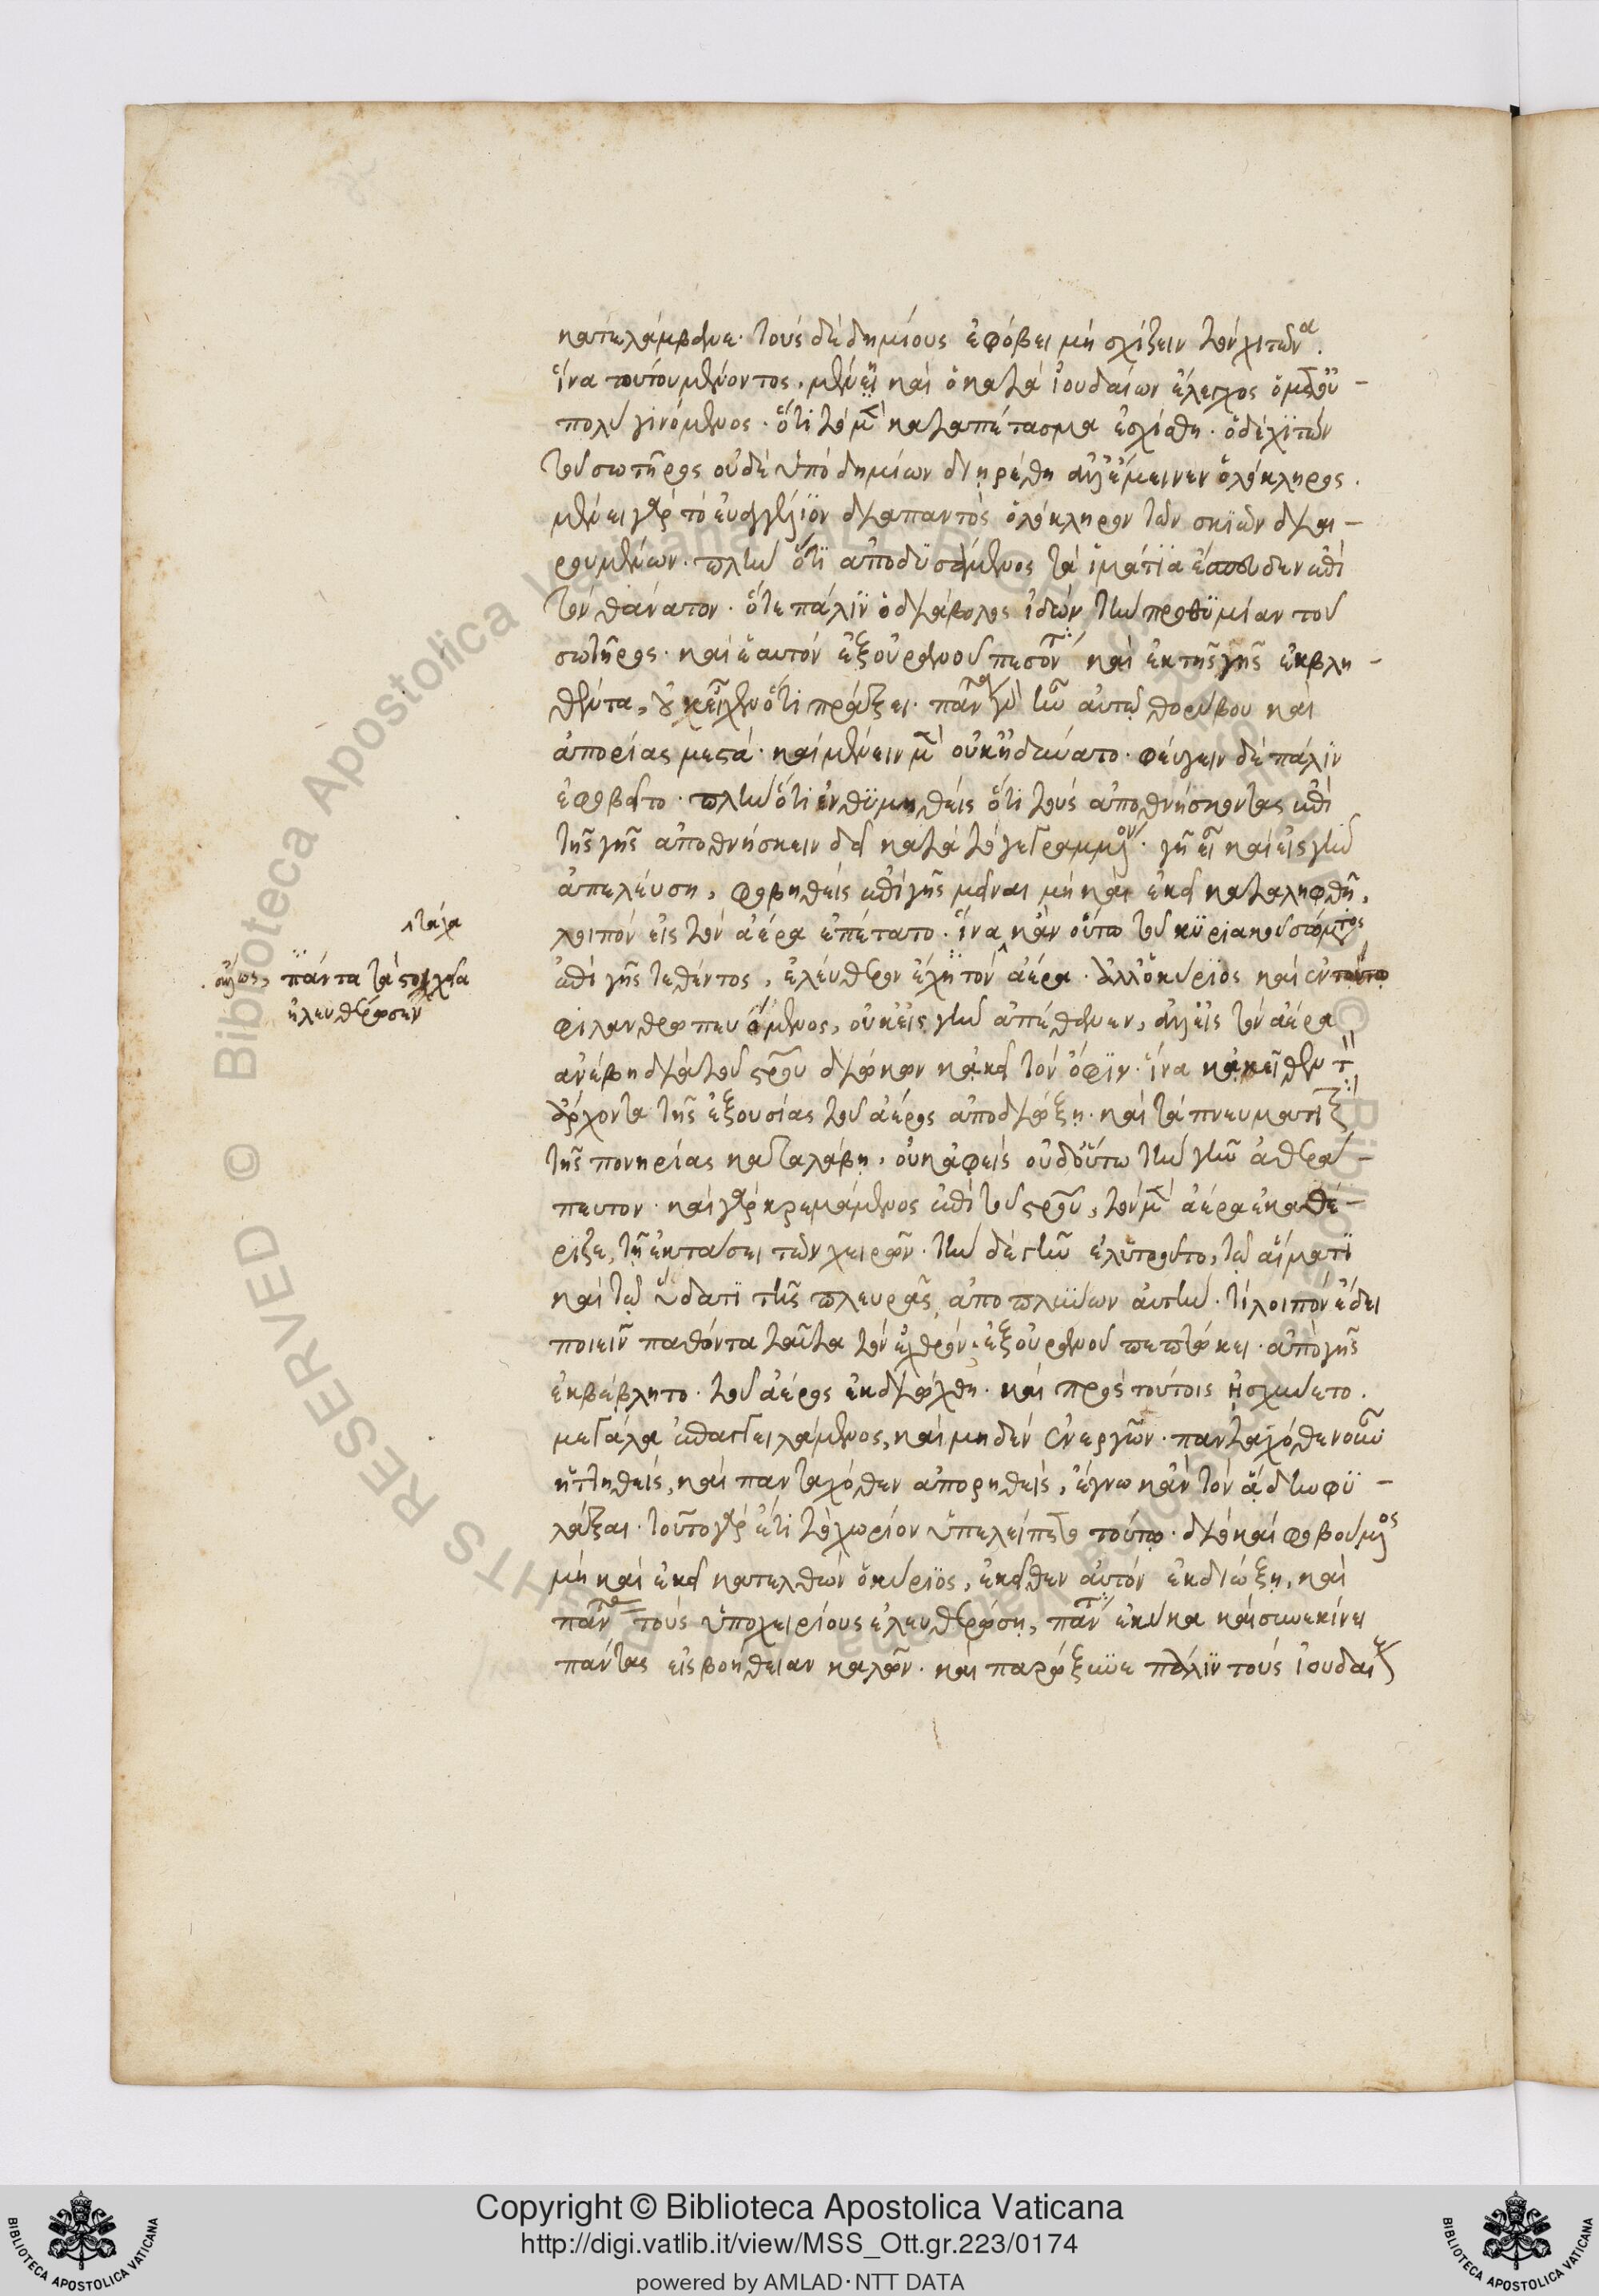 κατελάμβανε· τοὺς δὲ δημίους ἐφόβει μὴ σχίζειν τὸν χιτῶνα.
ἵνα τούτου μένοντος, μένει καὶ ὁ κατὰ ἰουδαίων ἔλεγχος ὁ μετ' οὐ
πολὺ γινόμενος· ὅτι τὸ μὲν καταπέτασμα ἐσχίσθη· ὁ δὲ χιτὼν
τοῦ σωτῆρος οὐδὲ ὑπὸ δημίων διῃρέθη ἀλλ' ἔμεινεν ὁλόκληρος.
μένει γὰρ τὸ εὐαγγέλιον διαπαντὸς ὁλόκληρον τῶν σκιῶν διαι-
ρουμένων· πλὴν ὅτι ἀποδυσάμενος τὰ ἱμάτια ἔσπευδεν ἐπὶ
τὸν θάνατον· ὅτε πάλιν ὁ διάβολος ἰδὼν τὴν προθυμίαν τοῦ
σωτῆρος· καὶ ἑαυτὸν ἐξ οὐρανοῦ πεσόντα καὶ ἐκ τῆς γῆς ἐκβλη-
θέντα, οὐκ εἶχεν ὅτι πράξει· πάντα γὰρ ἦν αὐτῷ θορύβου καὶ
ἀπορίας μεστά· καὶ μένειν μὲν οὐκ ἠδύνατο· φεύγειν δὲ πάλιν
ἐφοβεῖτο· πλὴν ὅτι ἐνθυμηθεὶς ὅτι τοὺς ἀποθνήσκοντας ἐπὶ
τῆς γῆς ἀποθνήσκειν δεῖ κατὰ τὸ γεγραμμένον· γῆ εἶ καὶ εἰς γῆν
ἀπελεύσῃ, φοβηθεὶς ἐπὶ γῆς μεῖναι μὴ καὶ ἐκεῖ καταληφθῇ,
λοιπὸν εἰς τὸν ἀέρα ἐπέτατο· ἵνα κἂν οὕτω τοῦ κυριακοῦ σώματος
ἐπὶ γῆς τεθέντος, ἐλεύθερον ἔχῃ τὸν ἀέρα· ἀλλ' ὁ κύριος καὶ ἐν τούτῳ
φιλανθρωπευόμενος, οὐκ εἰς γῆν ἀπέθανεν, ἀλλ' εἰς τὸν ἀέρα
ἀνέβη διὰ τοῦ σταυροῦ διώκων κἀκεῖ τὸν ὄφιν· ἵνα κἀκεῖθεν τὸν
ἄρχοντα τῆς ἐξουσίας τοῦ ἀέρος ἀποδιώξῃ· καὶ τὰ πνευματικὰ
τῆς πονηρίας καταλάβῃ, οὐκ ἀφεὶς οὐδ' οὕτω τὴν γῆν ἀθερά-
πευτον· καὶ γὰρ κρεμάμενος ἐπὶ τοῦ σταυροῦ, τὸν μὲν ἀέρα ἐκαθέ-
ριζε, τῇ ἐκτάσει τῶν χειρῶν· τὴν δὲ γῆν ἐλυτροῦτο, τῷ αἵματι
καὶ τῷ ὕδατι τῆς πλευρᾶς ἀποπλύνων αὐτήν· τί λοιπὸν ἔδει
ποιεῖν παθόντα ταῦτα τὸν ἐχθρόν· ἐξ οὐρανοῦ πεπτώκει· ἀπὸ γῆς
ἐκβέβλητο· τοῦ ἀέρος ἐκδιώχθη· καὶ πρὸς τούτοις ᾐσχύνετο.
μεγάλα ἐπαγγειλάμενος, καὶ μηδὲν ἐνεργῶν· πανταχόθεν οὖν
ἡττηθεὶς, καὶ πανταχόθεν ἀπορηθεὶς, ἔγνω κἂν τὸν ᾅδην φυ-
λάξαι· τοῦτο γὰρ ἔτι τὸ χωρίον ὑπελείπετο τούτῳ· διὸ καὶ φοβούμενος
μὴ καὶ ἐκεῖ κατελθὼν ὁ κύριος, ἐκεῖθεν αὐτὸν ἐκδιώξῃ, καὶ
πάντας τοὺς ὑποχειρίους ἐλευθερώσῃ, πάντα ἐκύκα καὶ συνεκίνει
πάντας εἰς βοήθειαν καλῶν· καὶ παρώξυνε πάλιν τοὺς ἰουδαίους
τάχα
πάντα τὰ στοιχεῖα
ἠλευθέρωσεν